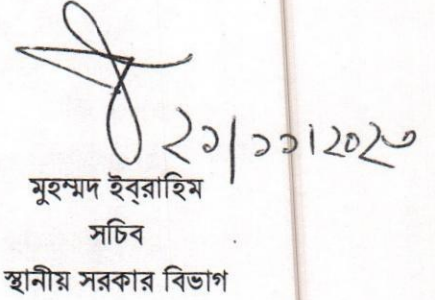 ২১|১১|২০২৩
মুহম্মদ ইব্‌রাহিম
সচিব
স্থানীয় সরকার বিভাগ